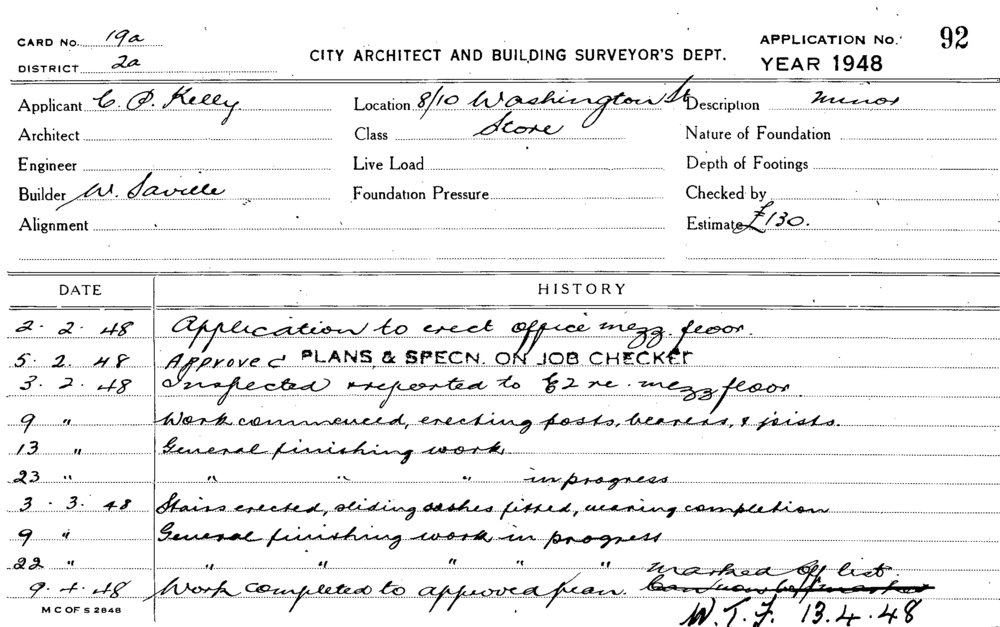 CARD No. 19a
DISTRICT 2a
CITY ARCHITECT AND BUILDING SURVEYOR'S DEPT.
APPLICATION No. 92
YEAR 1948
Applicant C. P. Kelly Location 8/10 Washington St Description Minor
Architect Class Store Nature of Foundation
Engineer Live Load Depth of Footings
Builder W. Saville Foundation Pressure Checked by
Alignment Estimate £130.
DATE HISTORY
2. 2. 48 Application to erect office mezz. floor.
5. 2. 48 Approved PLANS & SPECN. ON JOB CHECKET
3. 2. 48 Inspected & reported to E2 re. mezz floor.
9 " Work commenced, erecting posts, bearers, & joists.
13 " General finishing work.
23 " " " " in progress
3. 3. 48 Stairs erected, sliding sashes fitted, nearing completion
9 " General finishing work in progress
22 " " " " " "
marked off list.
9. 4. 48 Work completed to approved plan.
M C OF S 2848
W. T. F. 13. 4. 48